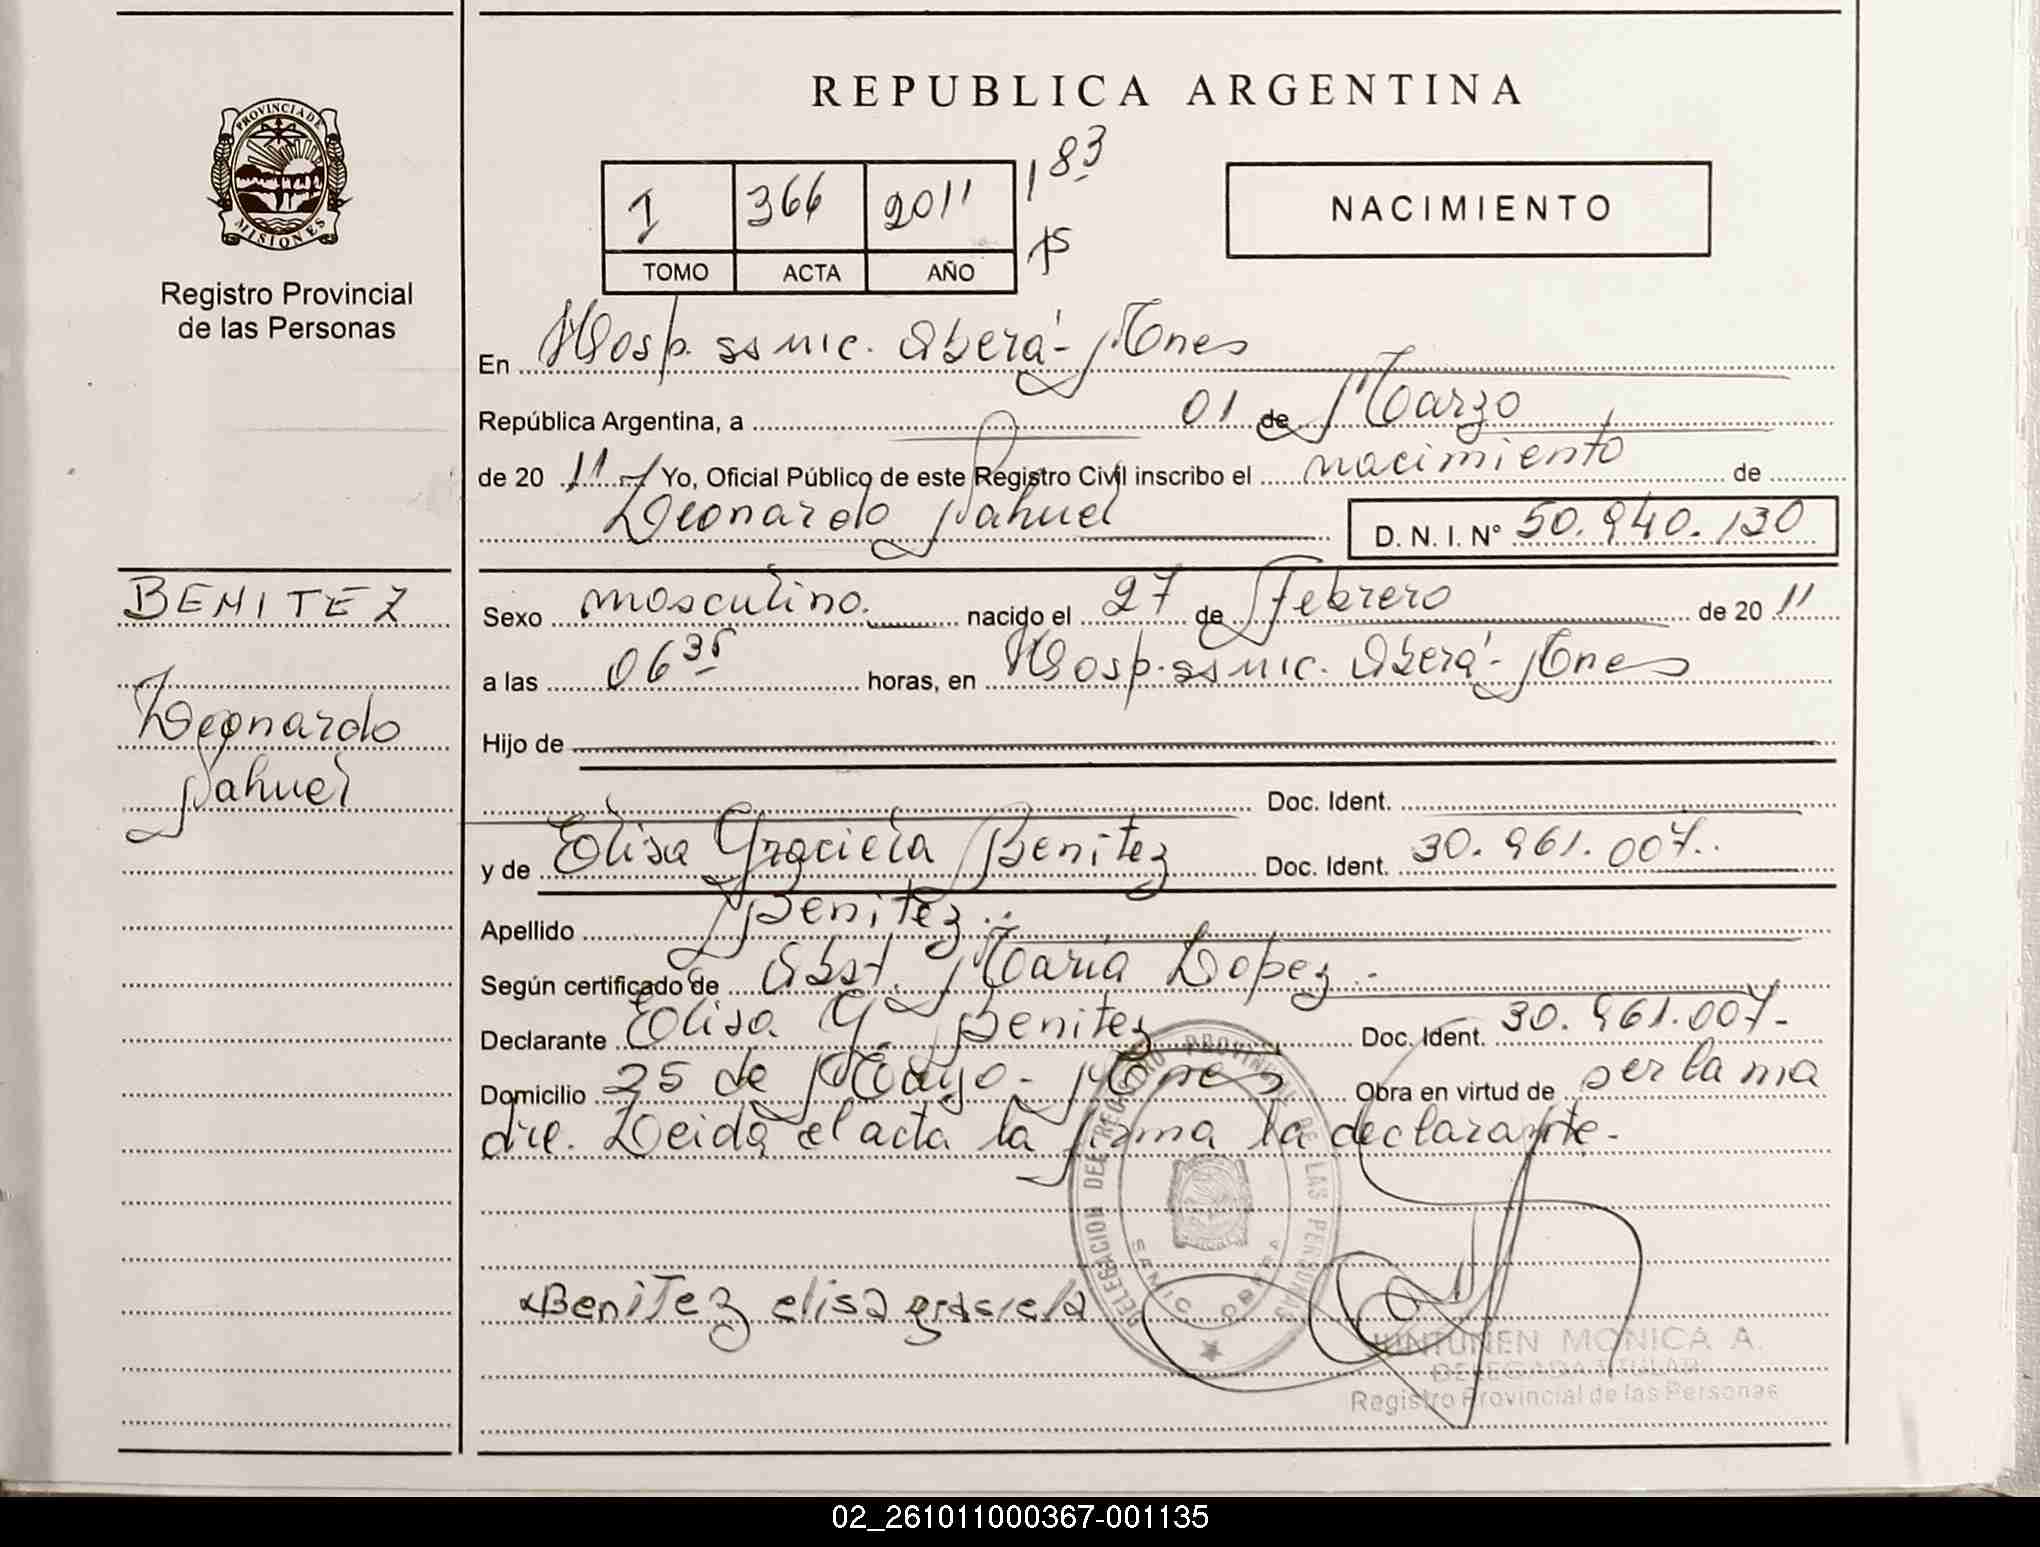 REPUBLICA ARGENTINA
PROVINCIA DE
MISIONES
Registro Provincial
de las Personas
I 366 2011 183
TOMO ACTA AÑO 15
NACIMIENTO
En Hosp. ss mic. Oberá - Mnes
República Argentina, a 01 de Marzo
de 20 11 Yo, Oficial Público de este Registro Civil inscribo el nacimiento de
Leonardo Nahuel D. N. I. N° 50.940.130
BENITEZ
Leonardo
Nahuel
Sexo masculino. nacido el 27 de Febrero de 20 11
a las 06 35 horas, en Hosp. ss mic. Oberá - Mnes
Hijo de
Doc. Ident.
y de Elisa Graciela Benitez Doc. Ident. 30.961.007..
Apellido Benitez..
Según certificado de Obst. Maria Lopez.
Declarante Elisa G. Benitez Doc. Ident. 30.961.007-
Domicilio 25 de Mayo - Mnes Obra en virtud de ser la ma
dre. Leida el acta la firma la declarante.
DELEGACION DEL REGISTRO PROVINCIAL DE LAS PERSONAS
SAMIC OBERA
Benitez elisa grasiela
JUNTUNEN MONICA A.
DELEGADA TITULAR
Registro Provincial de las Personas
02_261011000367-001135